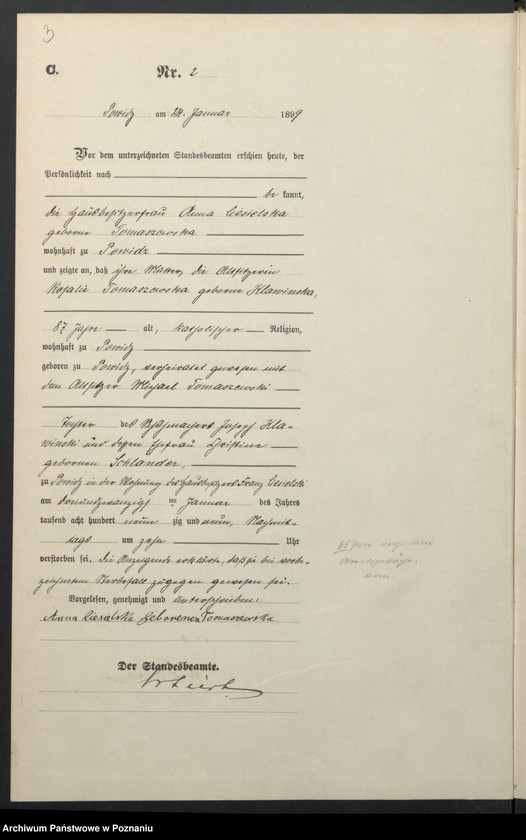 3
C.
Nr. 2
Powidz am 24. Januar 1899
Vor dem unterzeichneten Standesbeamten erschien heute, der
Persönlichkeit nach
be kannt,
die Hausbesitzerfrau Anna Ciesielska
geborne Tomaszewska
wohnhaft zu Powidz
und zeigte an, daß ihre Mutter, die Altsitzerin
Rosalie Tomaszewska geborne Klawinska,
87 Jahre alt, katholischer Religion,
wohnhaft zu Powidz
geboren zu Powidz, verheiratet gewesen mit
dem Altsitzer Michael Tomaszewski
Tochter des Joseph Kla-
winski und dessen Ehefrau Christine
gebornen Schlander,
zu Powidz in der Wohnung des Hausbesitzers Franz Ciesielski
am dreiundzwanzigsten Januar des Jahres
tausend acht hundert neun zig und neun, Nachmit-
tags um zehn Uhr
verstorben sei. Die Anzeigende erklärte, daß sie bei vorbe-
zeichnetem Sterbefall zugegen gewesen sei.
Vorgelesen, genehmigt und unterschrieben:
Anna Ciesielska Geborenen Tomaszewska
Der Standesbeamte.
Archiwum Państwowe w Poznaniu